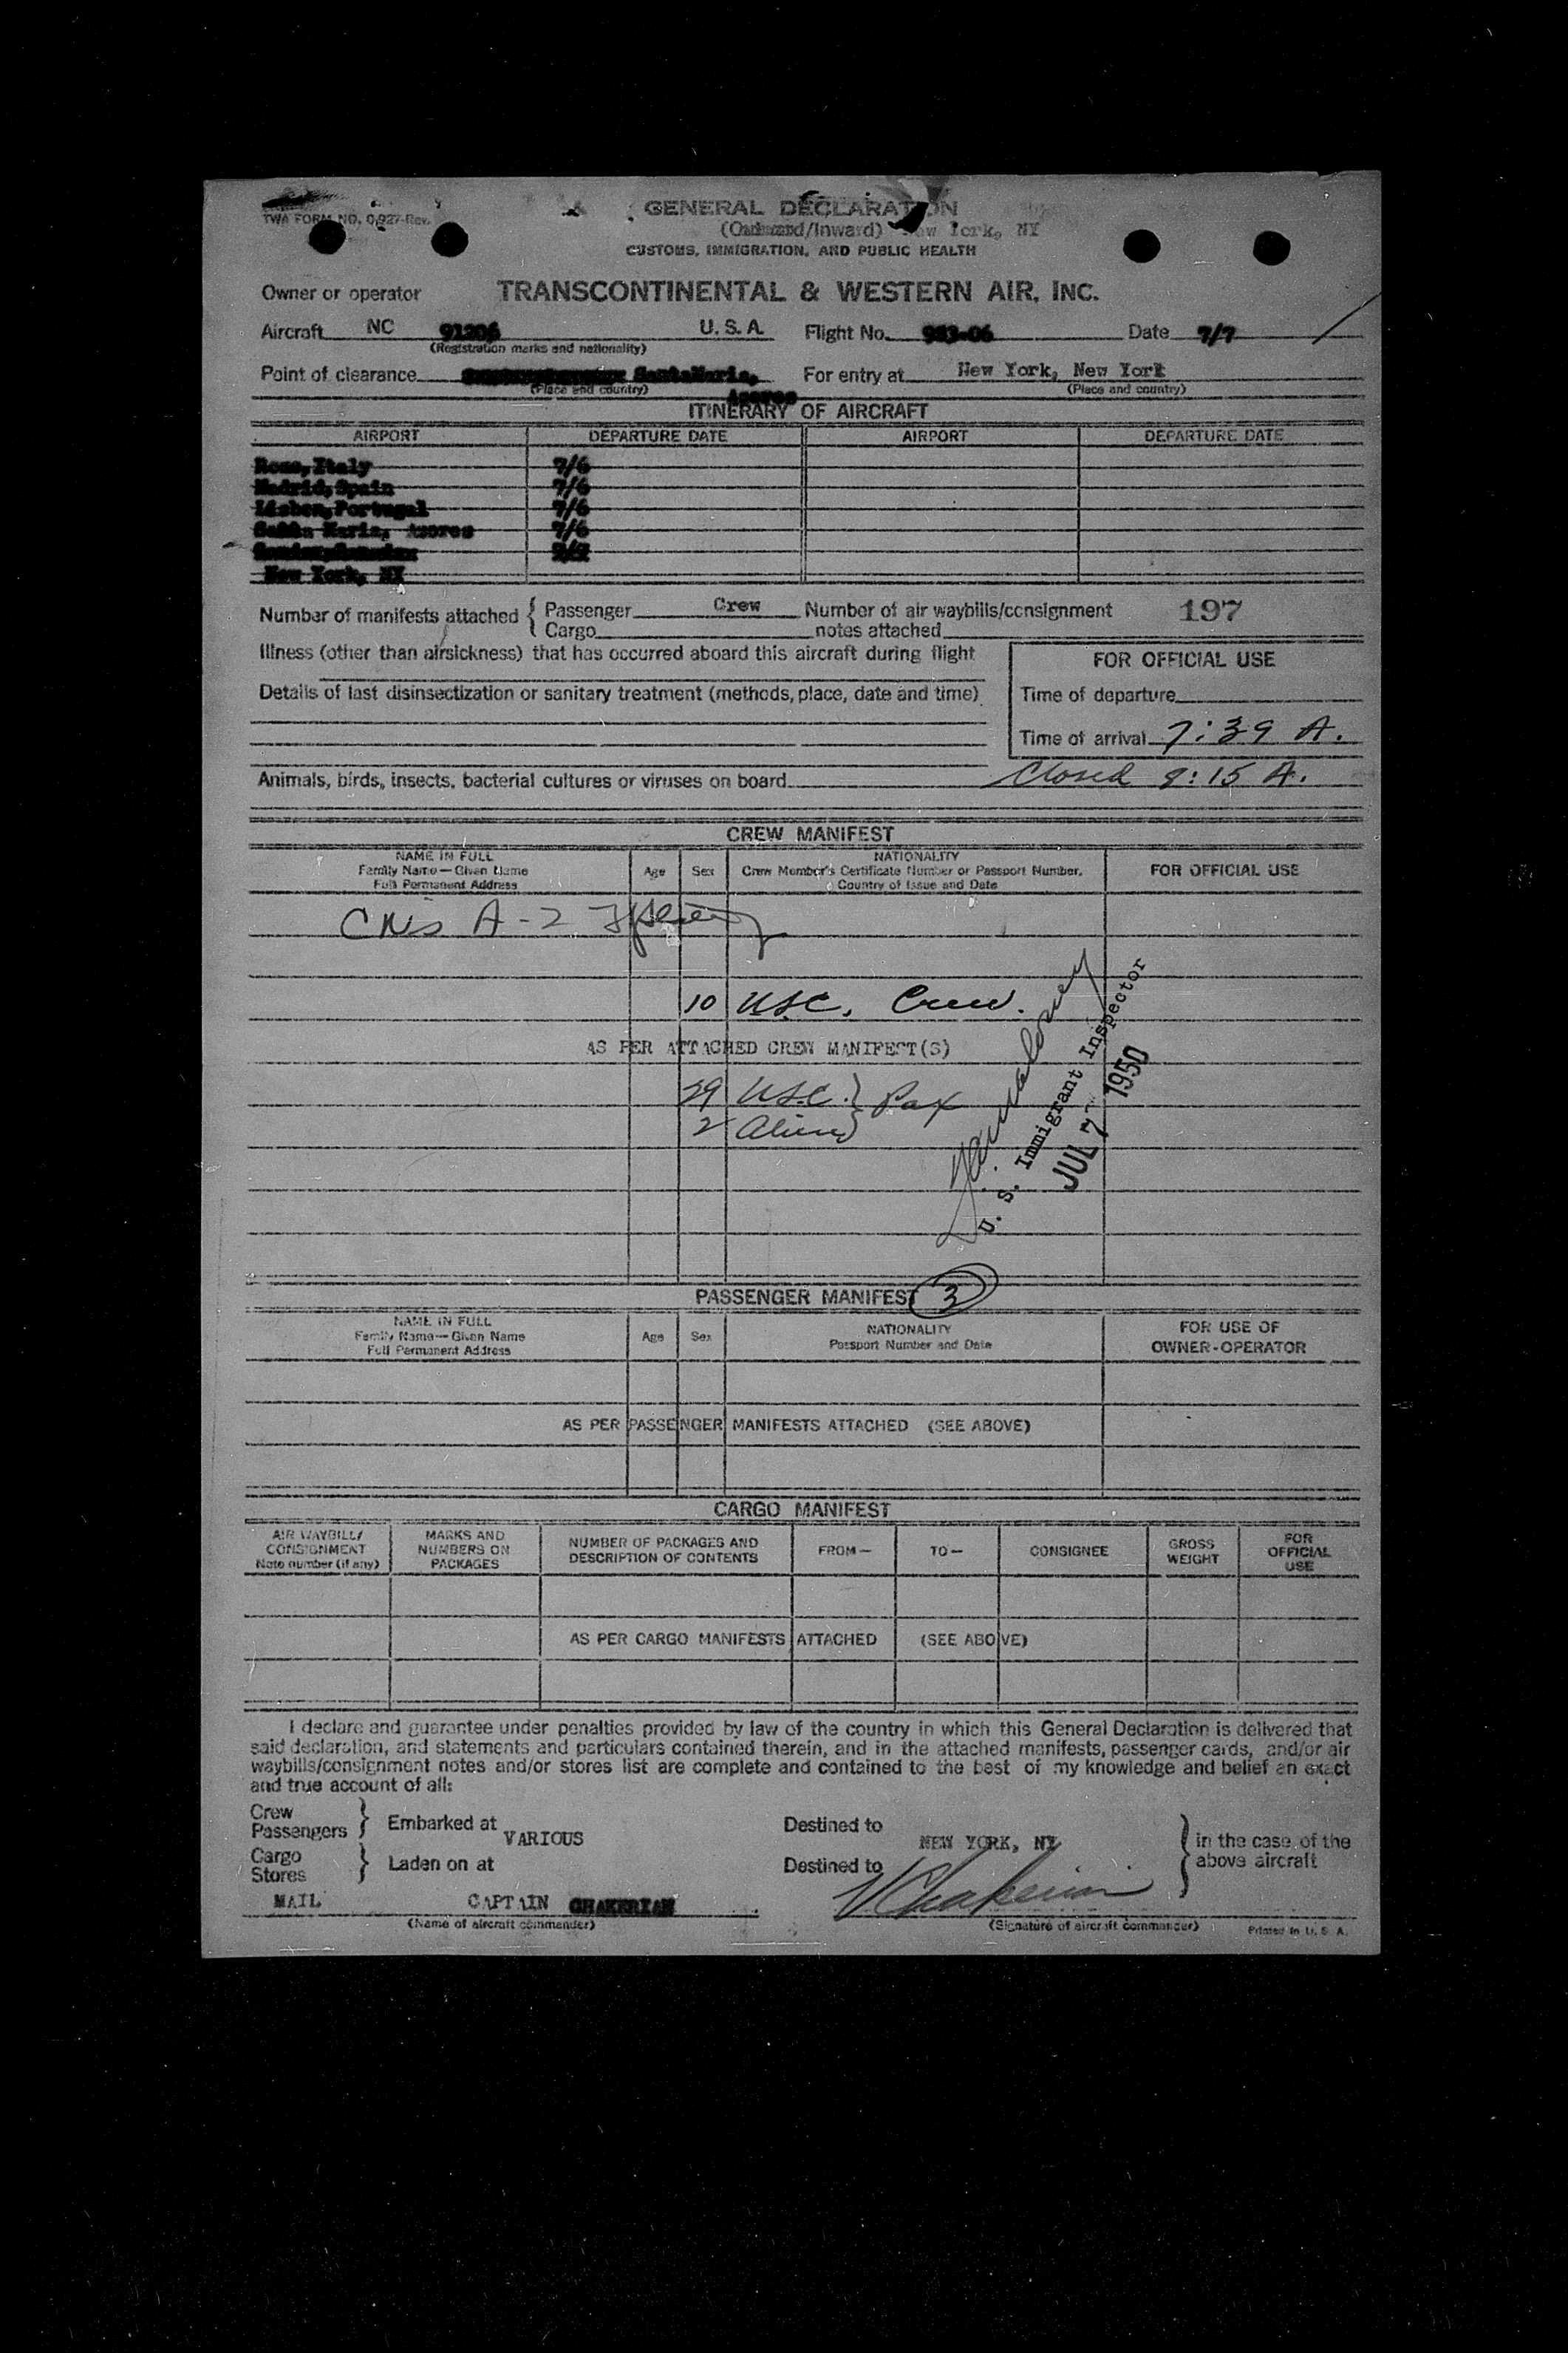 TWA FORM NO. 0,927-Rev.
GENERAL DECLARATION
(Outward/Inward) New York, NY
CUSTOMS, IMMIGRATION, AND PUBLIC HEALTH
Owner or operator TRANSCONTINENTAL & WESTERN AIR, INC.
Aircraft NC 91206 U. S. A. Flight No. 963-06 Date 7/7
(Registration marks and nationality)
Point of clearance SantaMaria, For entry at New York, New York
(Place and country) Azores (Place and country)
ITINERARY OF AIRCRAFT
AIRPORT DEPARTURE DATE AIRPORT DEPARTURE DATE
Rome, Italy 7/6
Madrid, Spain 7/6
Lisbon, Portugal 7/6
Santa Maria, Azores 7/6
7/7
New York, NY
Number of manifests attached { Passenger Crew Number of air waybills/consignment 197
Cargo notes attached
Illness (other than airsickness) that has occurred aboard this aircraft during flight
FOR OFFICIAL USE
Details of last disinsectization or sanitary treatment (methods, place, date and time)
Time of departure
Time of arrival 7:39 A.
Animals, birds, insects, bacterial cultures or viruses on board
Closed 8:15 A.
CREW MANIFEST
NAME IN FULL
Family Name—Given Name
Full Permanent Address
Age Sex
NATIONALITY
Crew Member's Certificate Number or Passport Number,
Country of Issue and Date
FOR OFFICIAL USE
A-2
10 USC. Crew.
AS PER ATTACHED CREW MANIFEST(S)
29 USC. } Pax
2 Aliens
U. S. Immigrant Inspector
JUL 7 1950
PASSENGER MANIFEST 3
NAME IN FULL
Family Name—Given Name
Full Permanent Address
Age Sex
NATIONALITY
Passport Number and Date
FOR USE OF
OWNER-OPERATOR
AS PER PASSENGER MANIFESTS ATTACHED (SEE ABOVE)
CARGO MANIFEST
AIR WAYBILL/
CONSIGNMENT
Note number (if any)
MARKS AND
NUMBERS ON
PACKAGES
NUMBER OF PACKAGES AND
DESCRIPTION OF CONTENTS
FROM—
TO—
CONSIGNEE
GROSS
WEIGHT
FOR
OFFICIAL
USE
AS PER CARGO MANIFESTS ATTACHED (SEE ABOVE)
I declare and guarantee under penalties provided by law of the country in which this General Declaration is delivered that
said declaration, and statements and particulars contained therein, and in the attached manifests, passenger cards, and/or air
waybills/consignment notes and/or stores list are complete and contained to the best of my knowledge and belief an exact
and true account of all:
Crew
Passengers } Embarked at VARIOUS Destined to NEW YORK, NY
Cargo
Stores } Laden on at Destined to
} in the case of the
above aircraft
MAIL CAPTAIN CHAKERIAN VChakerian
(Name of aircraft commander) (Signature of aircraft commander) Printed in U. S. A.